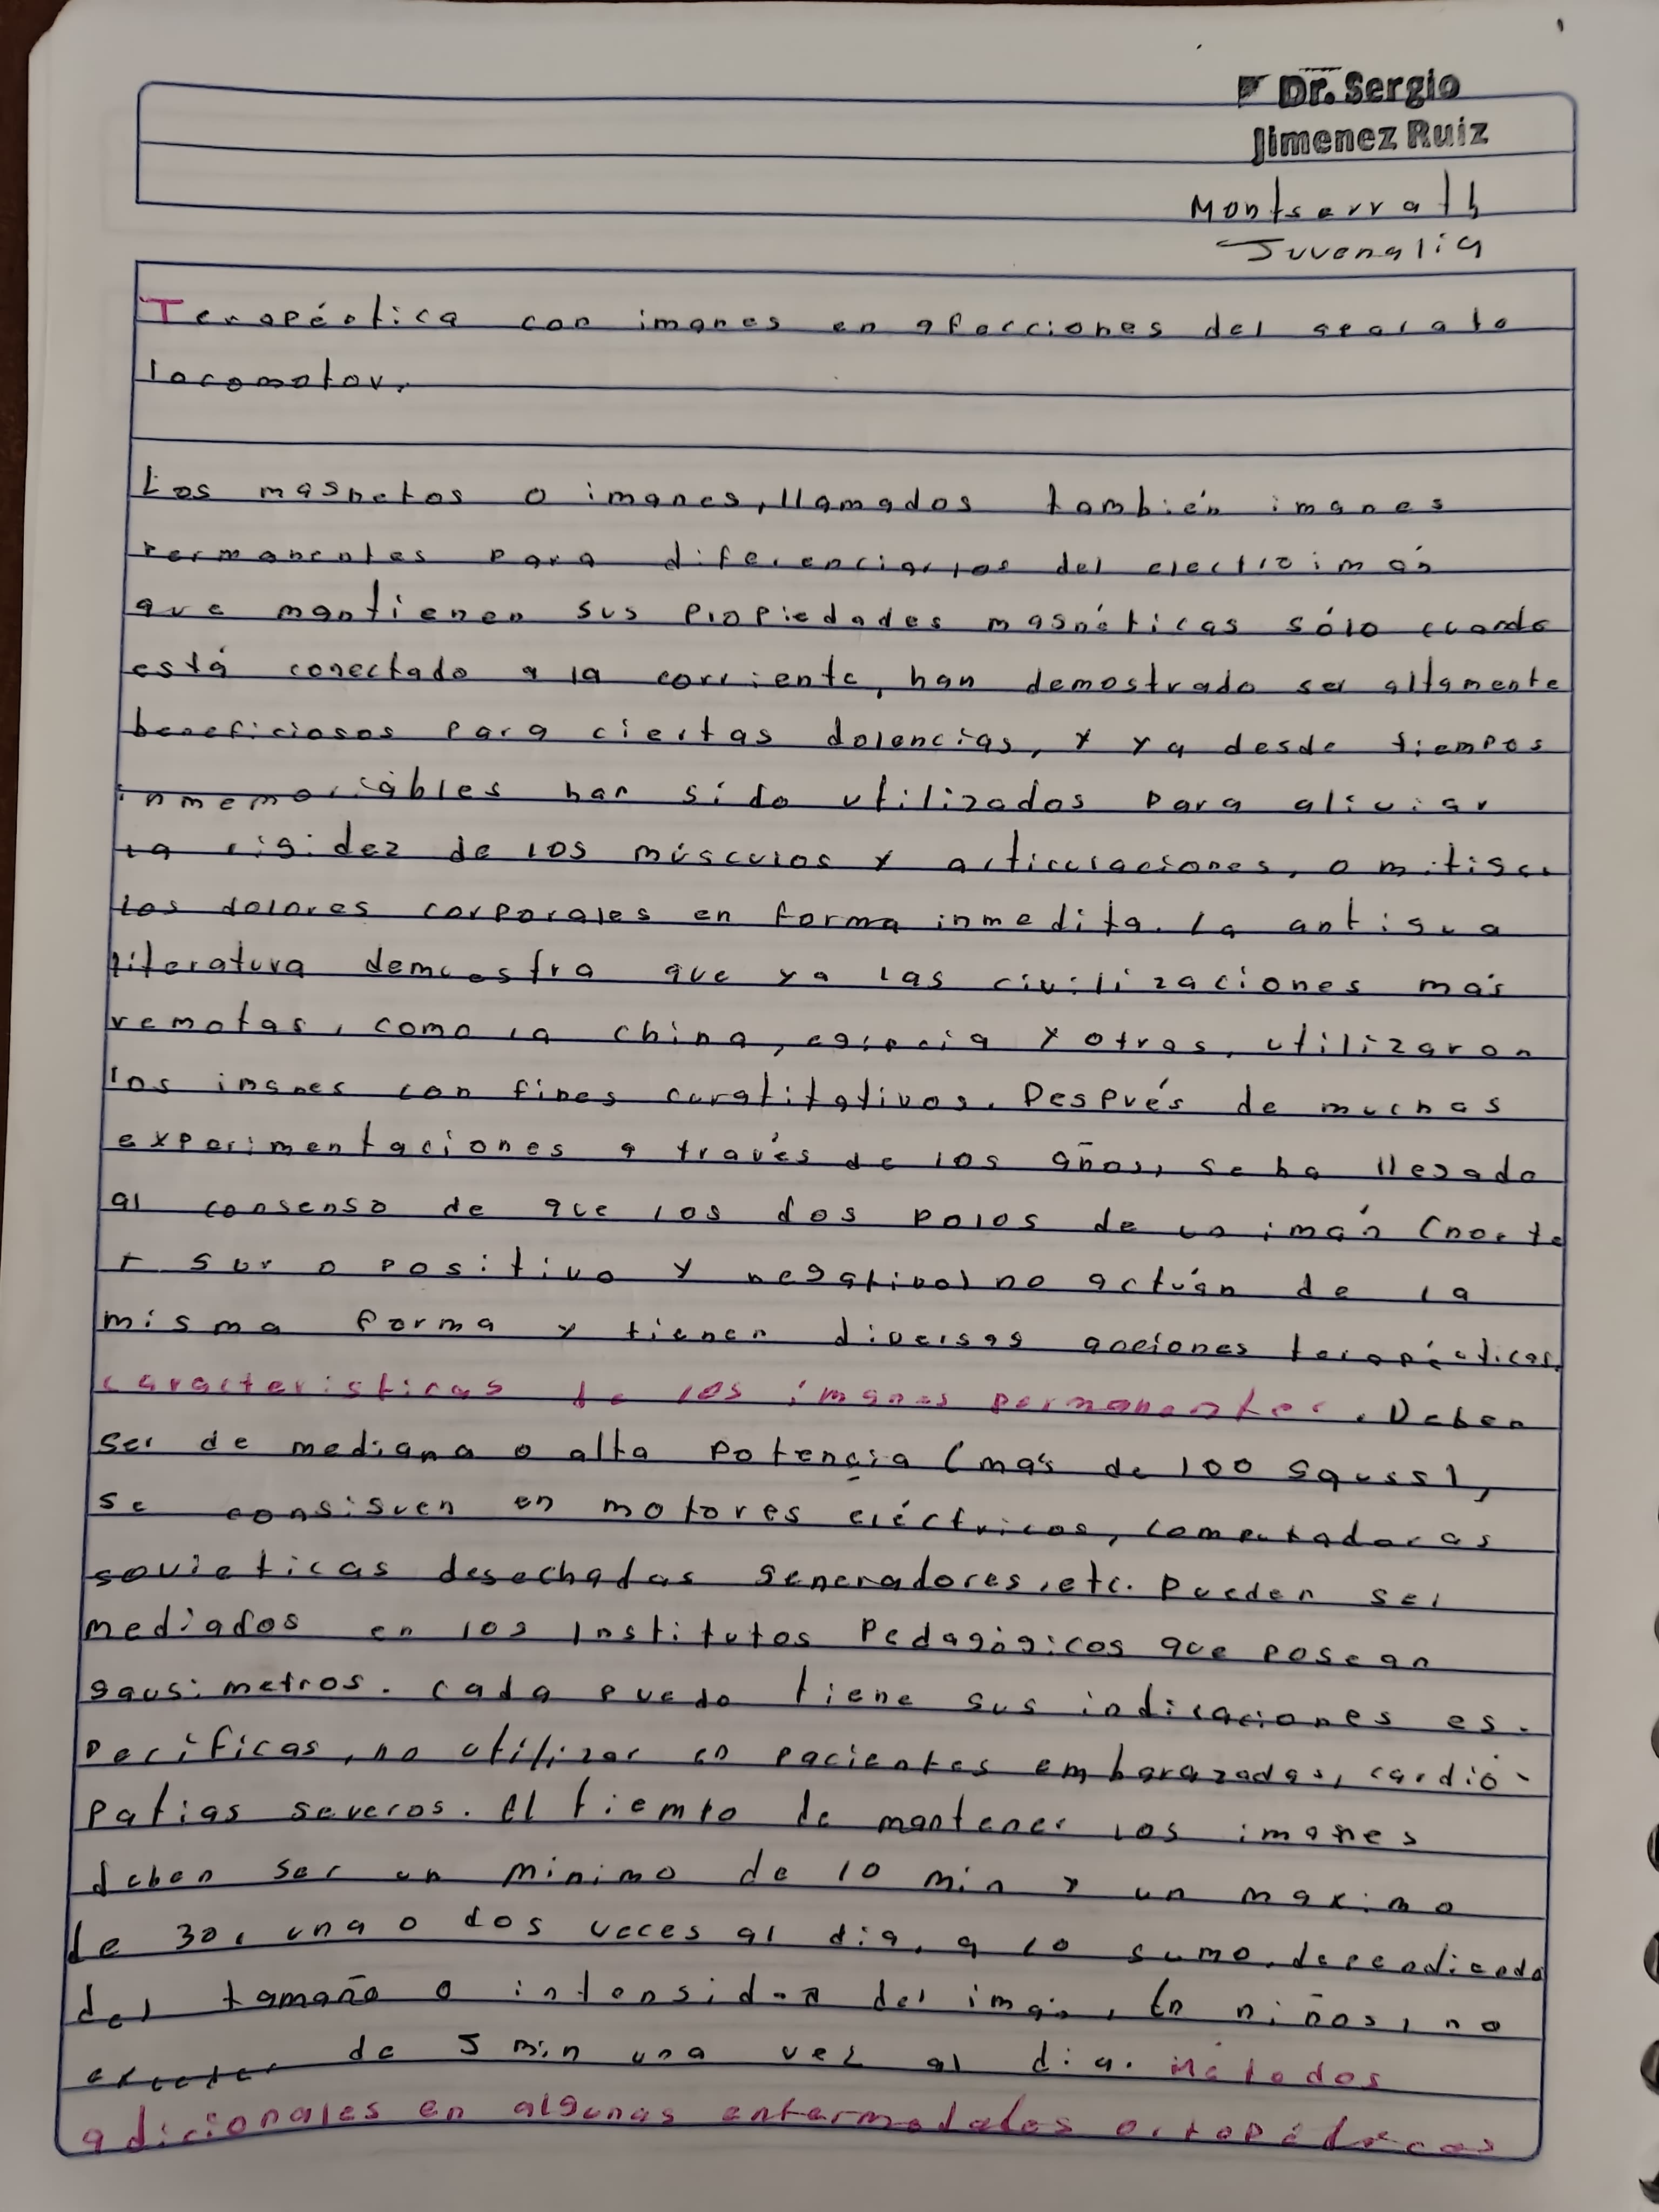 Dr. Sergio
Jimenez Ruiz
Montserrath
Juvenalia
Terapéutica con imanes en afecciones del aparato
locomotor.
Los magnetos o imanes, llamados también imanes
permanentes para diferenciarlos del electroimán
que mantienen sus propiedades magnéticas sólo cuando
está conectado a la corriente, han demostrado ser altamente
beneficiosos para ciertas dolencias, y ya desde tiempos
inmemoriables han sido utilizados para aliviar
la rigidez de los músculos y articulaciones, o mitigar
los dolores corporales en forma inmedita. La antigua
literatura demuestra que ya las civilizaciones más
remotas, como la china, egipcia y otras, utilizaron
los imanes con fines curatitativos. Después de muchas
experimentaciones a través de los años, se ha llegado
al consenso de que los dos polos de un imán (norte
y sur o positivo y negativo) no actúan de la
misma forma y tienen diversas acciones terapéuticas.
características de los imanes permanentes. Deben
ser de mediana o alta potencia (más de 100 gauss),
se consiguen en motores eléctricos, computadoras
sovieticas desechadas generadores, etc. pueden ser
mediados en los Institutos Pedagógicos que posean
gausimetros. cada puedo tiene sus indicaciones es-
pecíficas, no utilizar en pacientes embarazadas, cardió-
patias severos. El tiempo de mantener los imanes
deben ser un minimo de 10 min y un maximo
de 30, una o dos veces al dia, a lo sumo, dependiendo
del tamaño o intensidad del imán, En niños, no
exceder de 5 min una vez al dia. Métodos
adicionales en algunas enfermedades ortopédicas